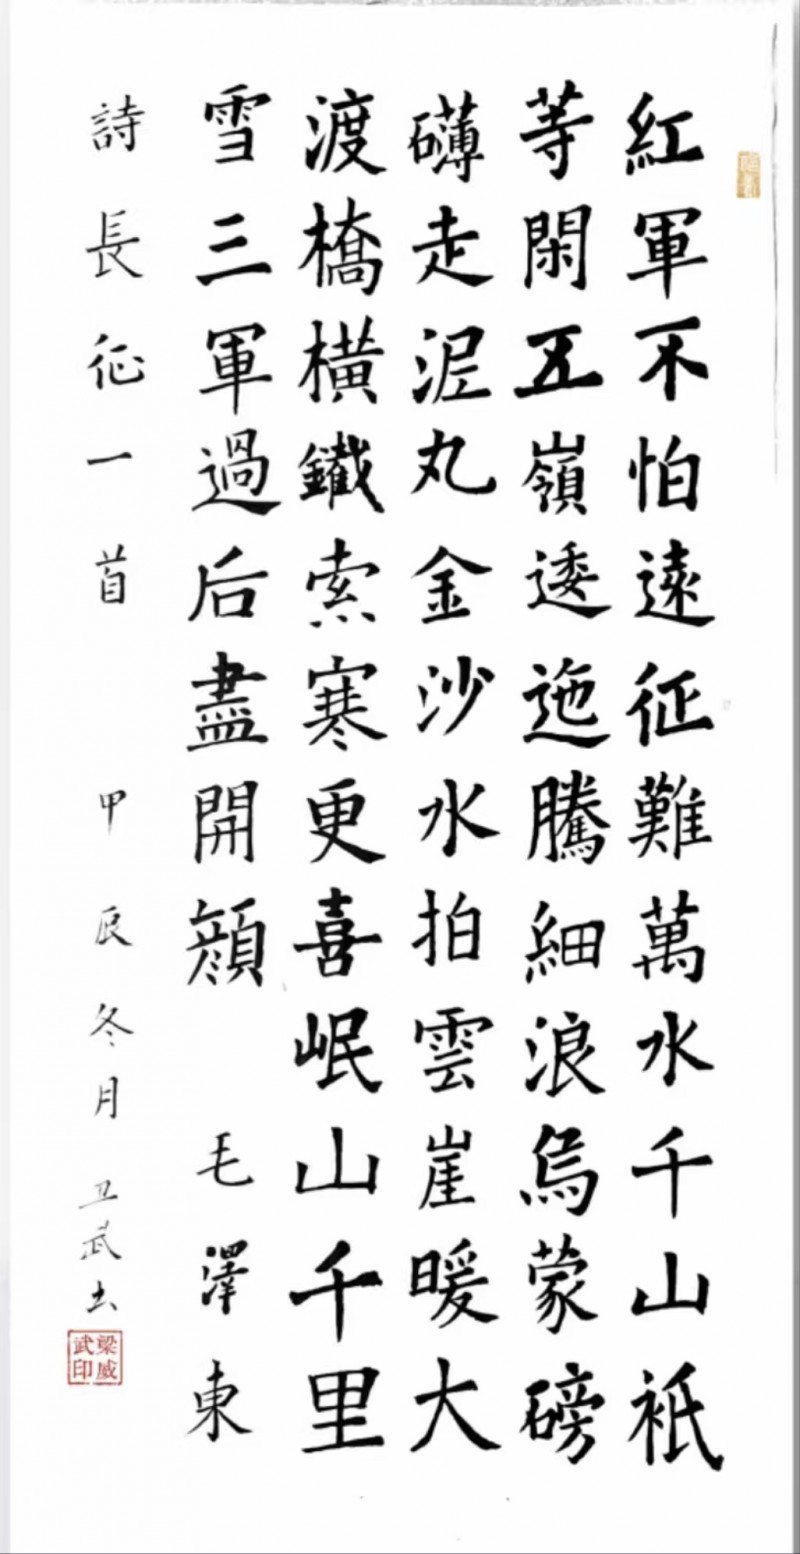 紅軍不怕遠征難萬水千山祇
等閑五嶺逶迤騰細浪烏蒙磅
礴走泥丸金沙水拍雲崖暖大
渡橋橫鐵索寒更喜岷山千里
雪三軍過后盡開顔 毛澤東
詩長征一首 甲辰冬月 卫武书
梁威武印